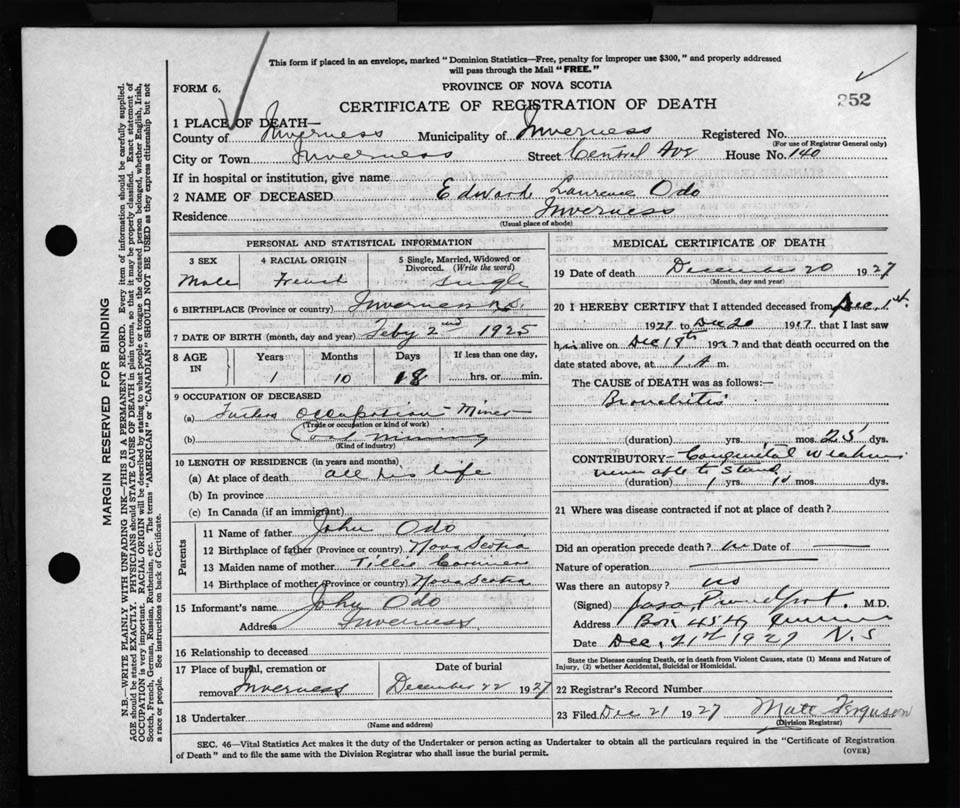 This form if placed in an envelope, marked "Dominion Statistics—Free, penalty for improper use $300," and properly addressed
will pass through the Mail "FREE."
FORM 6.
PROVINCE OF NOVA SCOTIA
252
CERTIFICATE OF REGISTRATION OF DEATH
1 PLACE OF DEATH—
County of Inverness Municipality of Inverness Registered No.
(For use of Registrar General only)
City or Town Inverness Street Central Ave House No. 140
If in hospital or institution, give name
2 NAME OF DECEASED Edward Laurence Odo
Residence Inverness
(Usual place of abode)
PERSONAL AND STATISTICAL INFORMATION
3 SEX 4 RACIAL ORIGIN 5 Single, Married, Widowed or
Divorced. (Write the word)
Male French Single
6 BIRTHPLACE (Province or country) Inverness N.S.
7 DATE OF BIRTH (month, day and year) Feby 2nd 1925
8 AGE IN Years Months Days If less than one day,
1 10 18 hrs. or min.
9 OCCUPATION OF DECEASED
(a) Fathers occupation Miner
(Trade or occupation or kind of work)
(b) Coal Mining
(Kind of industry)
10 LENGTH OF RESIDENCE (in years and months)
(a) At place of death all his life
(b) In province
(c) In Canada (if an immigrant)
Parents
11 Name of father John Odo
12 Birthplace of father (Province or country) Nova Scotia
13 Maiden name of mother Tillie
14 Birthplace of mother (Province or country) Nova Scotia
15 Informant's name John Odo
Address Inverness
16 Relationship to deceased
17 Place of burial, cremation or Date of burial
removal Inverness December 22 1927
18 Undertaker
(Name and address)
MEDICAL CERTIFICATE OF DEATH
19 Date of death December 20 1927
(Month, day and year)
20 I HEREBY CERTIFY that I attended deceased from Dec. 1st.
1927 to Dec 20 1927 that I last saw
his alive on Dec 19th 1927 and that death occurred on the
date stated above, at 1. A m.
The CAUSE of DEATH was as follows:—
Bronchitis
(duration) yrs. mos. 25 dys.
CONTRIBUTORY Congenital Weakness
never able to stand
(duration) 1 yrs. 10 mos. dys.
21 Where was disease contracted if not at place of death?
Did an operation precede death? no Date of
Nature of operation
Was there an autopsy? no
(Signed) M.D.
Address Box 454 N.S
Date Dec. 21st 1927
State the Disease causing Death, or in death from Violent Causes, state (1) Means and Nature of
Injury, (2) whether Accidental, Suicidal or Homicidal.
22 Registrar's Record Number
23 Filed Dec 21 1927 Matt Ferguson
(Division Registrar)
SEC. 46—Vital Statistics Act makes it the duty of the Undertaker or person acting as Undertaker to obtain all the particulars required in the "Certificate of Registration
of Death" and to file the same with the Division Registrar who shall issue the burial permit.
(OVER)
MARGIN RESERVED FOR BINDING
N.B.—WRITE PLAINLY WITH UNFADING INK—THIS IS A PERMANENT RECORD. Every item of information should be carefully supplied.
AGE should be stated EXACTLY. PHYSICIANS should STATE CAUSE OF DEATH in plain terms, so that it may be properly classified. Exact statement of
OCCUPATION is very important. RACIAL ORIGIN will be described by stating to what people or tongue the deceased person belonged, whether English, Irish,
Scotch, French, German, Russian, Ruthenian, etc. The terms "AMERICAN" or "CANADIAN" SHOULD NOT BE USED as they express citizenship but not
a race or people. See instructions on back of Certificate.